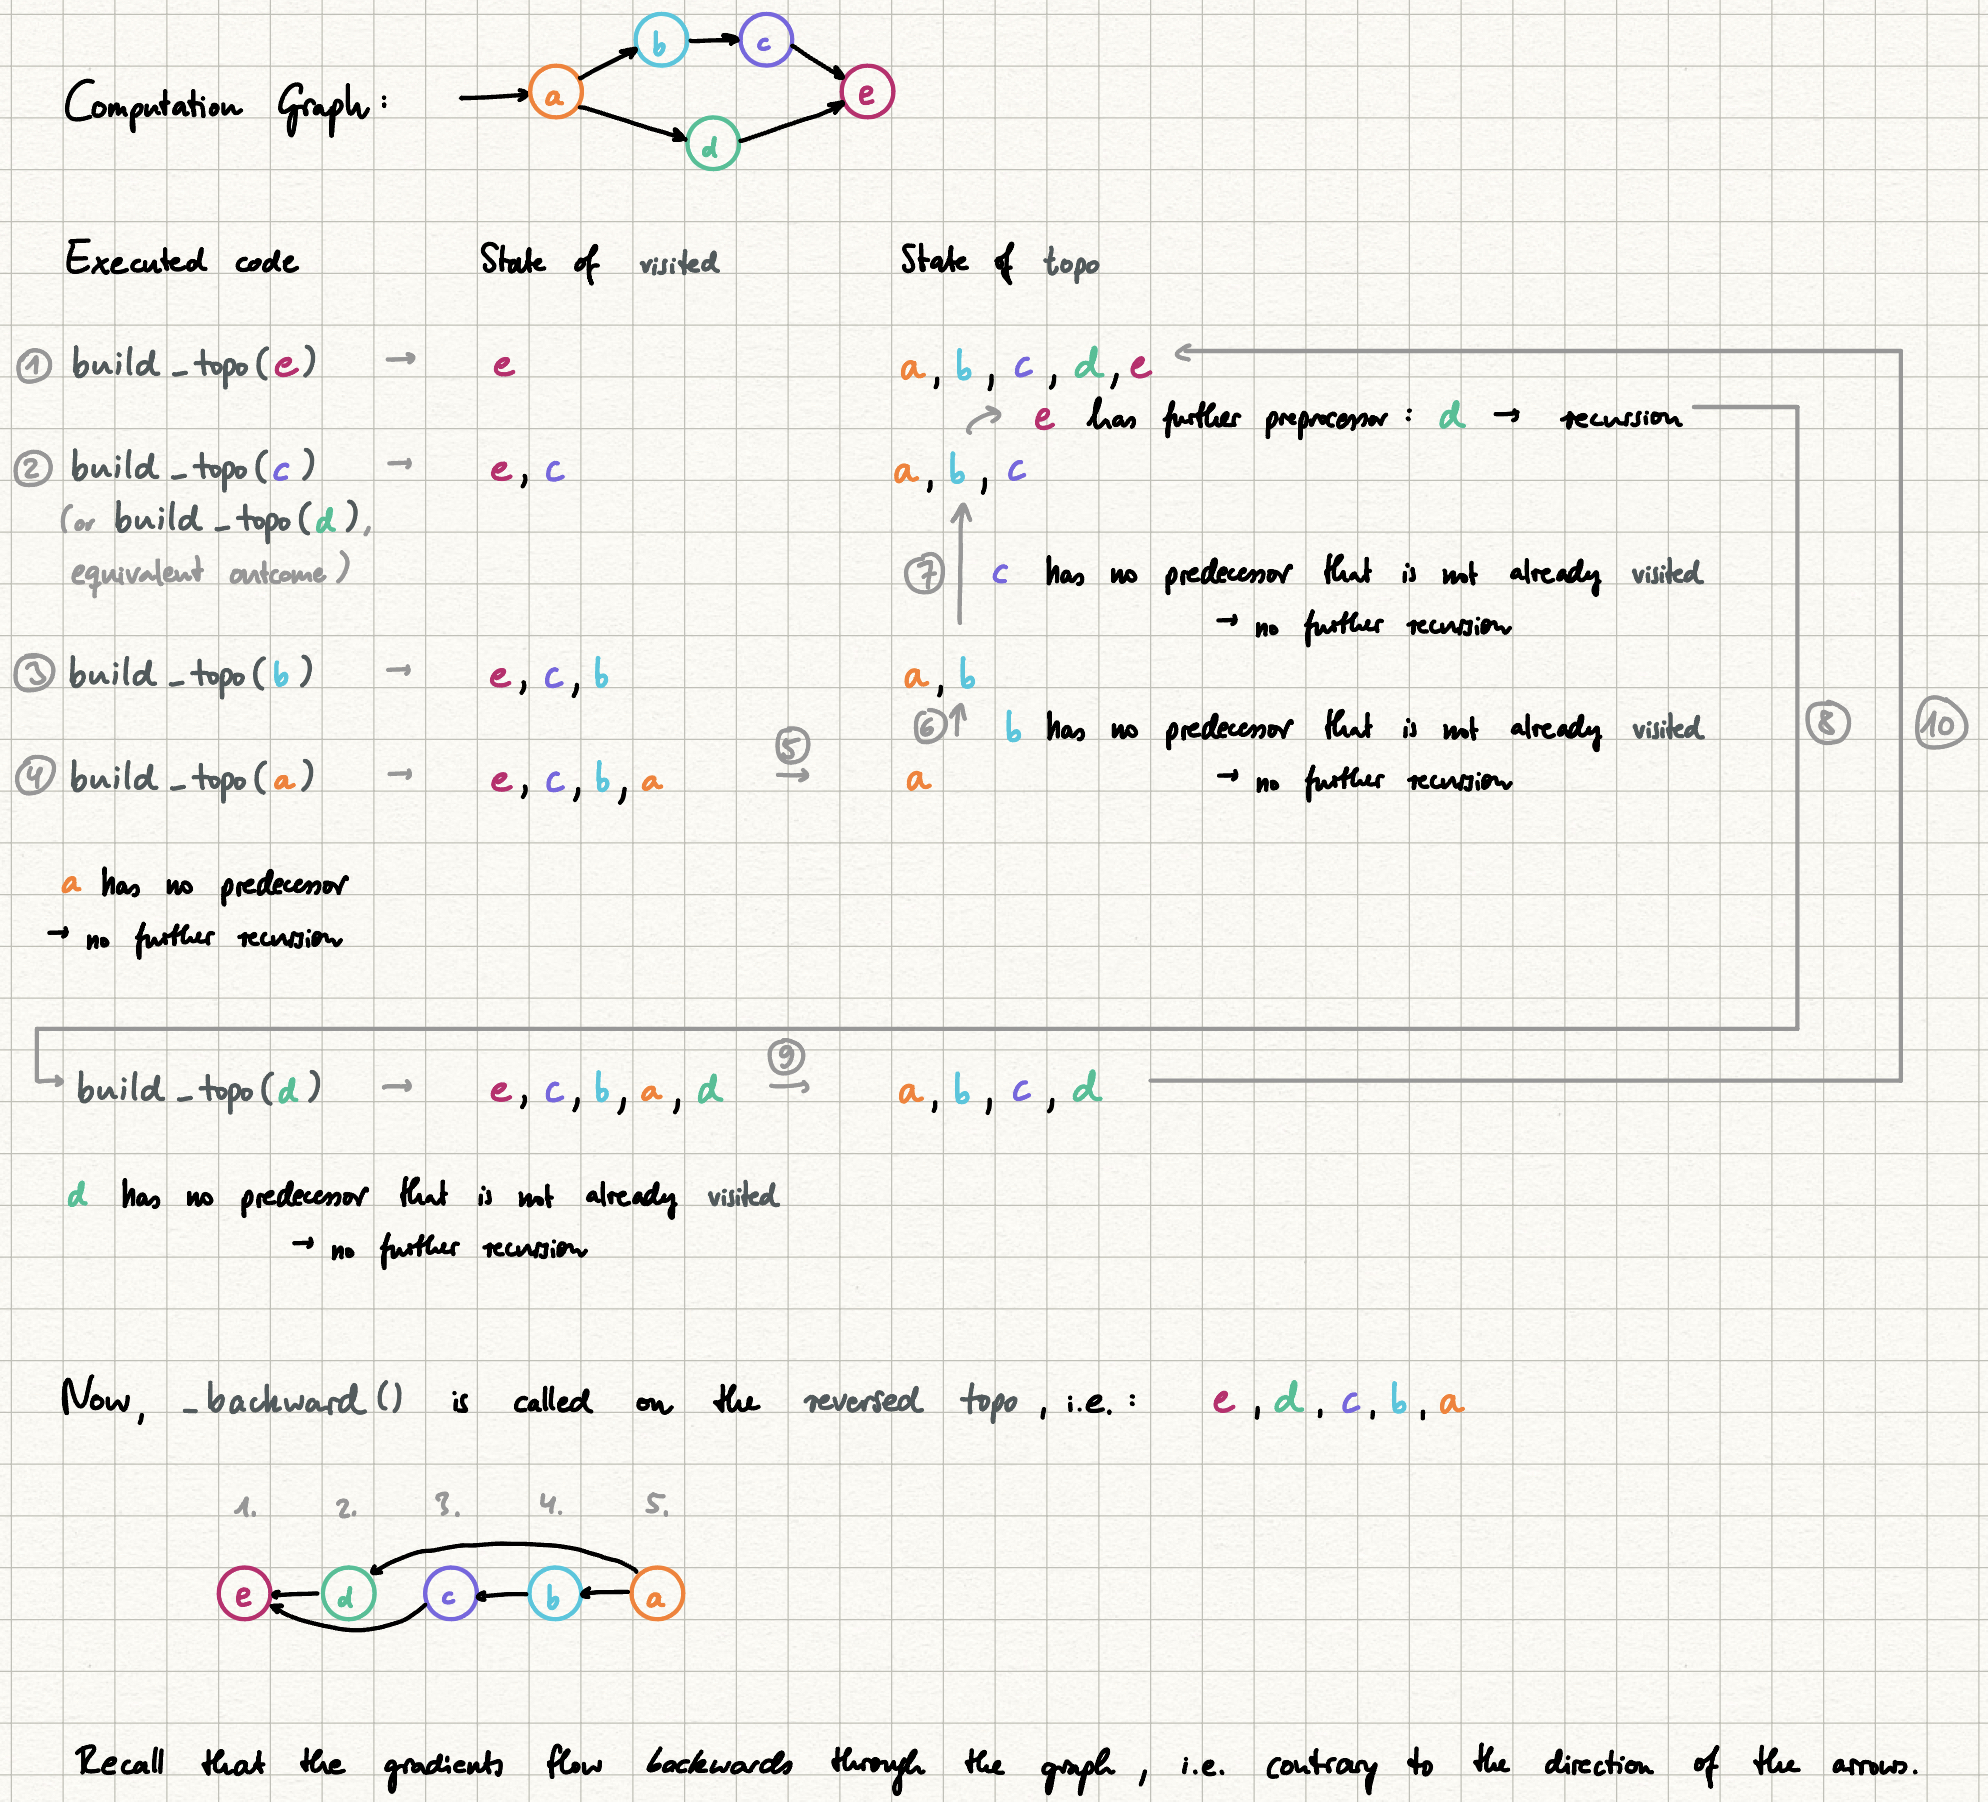 Computation Graph:
a b c d e
Executed code State of visited State of topo
① build_topo(e) → e a, b, c, d, e
e has further preprocessor: d → recursion
② build_topo(c) → e, c a, b, c
(or build_topo(d),
equivalent outcome)
⑦ c has no predecessor that is not already visited
→ no further recursion
③ build_topo(b) → e, c, b a, b
⑥ b has no predecessor that is not already visited ⑧ ⑩
④ build_topo(a) → e, c, b, a ⑤ → a → no further recursion
a has no predecessor
→ no further recursion
build_topo(d) → e, c, b, a, d ⑨ → a, b, c, d
d has no predecessor that is not already visited
→ no further recursion
Now, _backward() is called on the reversed topo, i.e.: e, d, c, b, a
1. 2. 3. 4. 5.
e d c b a
Recall that the gradients flow backwards through the graph, i.e. contrary to the direction of the arrows.